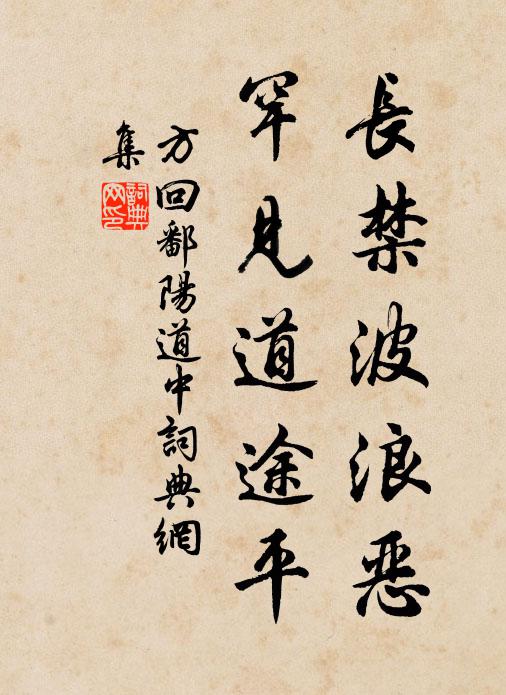 長禁波浪惡
罕見道途平
方回鄱陽道中詞典網
集
詞典網印